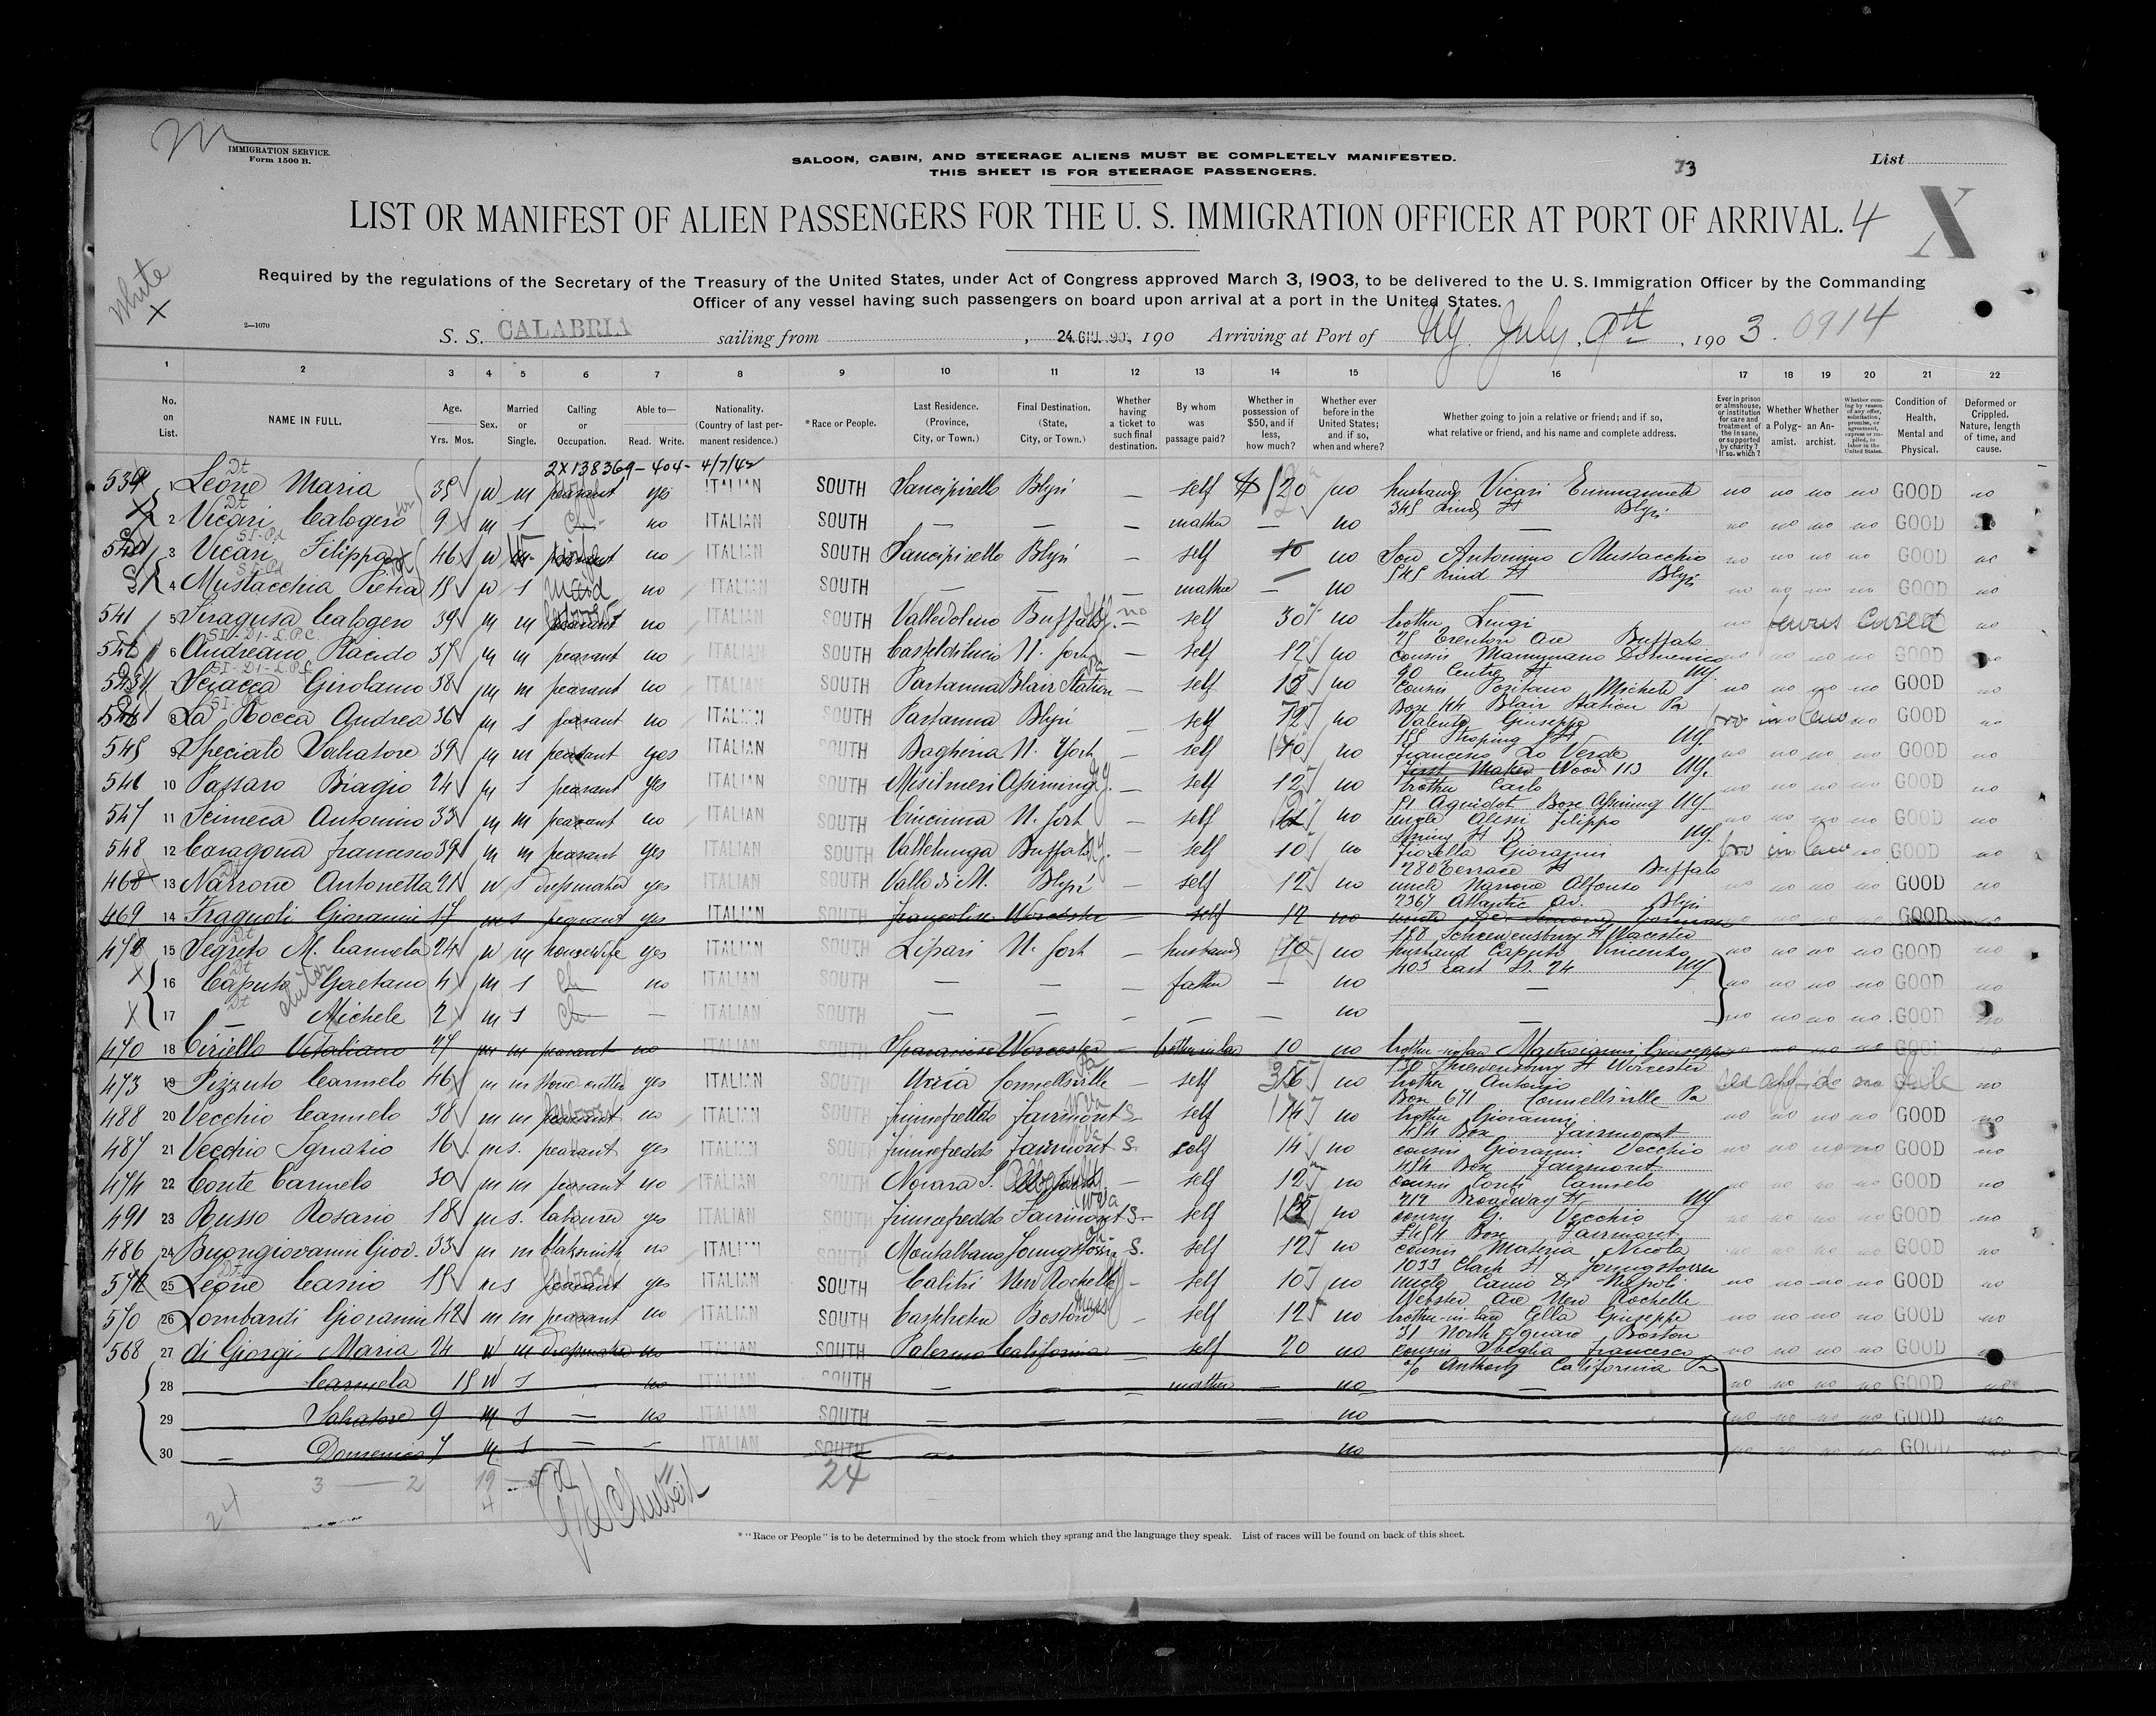 IMMIGRATION SERVICE.
Form 1500 B.
SALOON, CABIN, AND STEERAGE ALIENS MUST BE COMPLETELY MANIFESTED.
THIS SHEET IS FOR STEERAGE PASSENGERS.
73
List
LIST OR MANIFEST OF ALIEN PASSENGERS FOR THE U. S. IMMIGRATION OFFICER AT PORT OF ARRIVAL. 4 X
White X
Required by the regulations of the Secretary of the Treasury of the United States, under Act of Congress approved March 3, 1903, to be delivered to the U. S. Immigration Officer by the Commanding
Officer of any vessel having such passengers on board upon arrival at a port in the United States.
2—1070
S. S. CALABRIA sailing from , 24. GIU. 90 , 190 Arriving at Port of NY. July 9th , 190 3. 0914
1 2 3 4 5 6 7 8 9 10 11 12 13 14 15 16 17 18 19 20 21 22
No. on List. NAME IN FULL. Age. Yrs. Mos. Sex. Married or Single. Calling or Occupation. Able to— Read. Write. Nationality. (Country of last permanent residence.) *Race or People. Last Residence. (Province, City, or Town.) Final Destination. (State, City, or Town.) Whether having a ticket to such final destination. By whom was passage paid? Whether in possession of $50, and if less, how much? Whether ever before in the United States; and if so, when and where? Whether going to join a relative or friend; and if so, what relative or friend, and his name and complete address. Ever in prison or almshouse, or institution for care and treatment of the insane, or supported by charity? If so, which? Whether a Polygamist. Whether an Anarchist. Whether coming by reason of any offer, solicitation, promise, or agreement, express or implied, to labor in the United States. Condition of Health, Mental and Physical. Deformed or Crippled. Nature, length of time, and cause.
2X138369-404-4/7/42
1 Leone Maria 35 w m peasant yes ITALIAN SOUTH Sancipirello Blyn — self $ 20 no husband Vicari Emmanuele no no no no GOOD no
345 Lind St Blyn
2 Vicari Calogero 9 m s Ch no ITALIAN SOUTH — — — mother — no — no no no no GOOD
3 Vicari Filippa 46 w no ITALIAN SOUTH Sancipirello Blyn — self 10 no Son Antonino Mustacchio no no no no GOOD no
545 Lind St Blyn
4 Mustacchia Pietra 15 w s maid no ITALIAN SOUTH — — — mother — no — no no no no GOOD no
541 5 Siragusa Calogero 39 m m no ITALIAN SOUTH Valledolmo Buffalo no self 30 no brother Luigi no cured GOOD no
Trenton Ave Buffalo
6 Andreano Placido 37 m m peasant no ITALIAN SOUTH Casteldilucio N. York — self 12 no cousin Mammano Domenico no no no no GOOD
90 Centre St NY
7 Sciacca Girolamo 38 m m peasant no ITALIAN SOUTH Partanna Blair Station Pa — self 15 no cousin Positano Michele no no no no GOOD no
Box 44 Blair Station Pa
8 La Rocca Andrea 36 m s peasant no ITALIAN SOUTH Partanna Blyn — self 12 no Valenta Giuseppe bro in law no GOOD no
NY.
545 9 Speciale Salvatore 39 m m peasant yes ITALIAN SOUTH Bagheria N. York — self 10 no Francesco Lo Verde no no no no GOOD no
Wood 113 NY.
546 10 Passaro Biagio 24 m s peasant yes ITALIAN SOUTH Misilmeri Ossining NY. — self 12 no brother Carlo no no no no GOOD no
51 Box Ossining NY
547 11 Scimeca Antonino 33 m m peasant no ITALIAN SOUTH Ciminna N. York — self 12 no uncle Alessi Filippo no no no no GOOD no
Spring St 13 NY.
548 12 Caragona Francesco 39 m m peasant yes ITALIAN SOUTH Vallelunga Buffalo NY. — self 10 no Fiorella Giovanni bro in law no GOOD no
280 Terrace St Buffalo
468 13 Narrone Antonetta 21 w s dressmaker yes ITALIAN SOUTH Vallo di M. Blyn — self 12 no uncle Narrone Alfonso no no no no GOOD no
2367 Atlantic Av. Blyn
469 14 Fragnoli Giovanni 17 m s peasant yes ITALIAN SOUTH Francolise Worcester — self 12 no uncle no no no no GOOD no
188 Schrewensbury St Worcester
472 15 Segreto M. Carmela 24 w m housewife yes ITALIAN SOUTH Lipari N. York — husband 10 no husband Caputo Vincenzo no no no no GOOD no
403 East St. 24 NY
16 Caputo Gaetano 4 m s Ch no ITALIAN SOUTH — — — father — no — no no no no GOOD no
17 — Michele 2 m s Ch — ITALIAN SOUTH — — — — — no — no no no no GOOD no
470 18 Ciriello Vitaliano 27 m m peasant no ITALIAN SOUTH Sparanise Worcester — brother in law 10 no brother-in-law Mastroianni Giuseppe no no no no GOOD no
Shrewensbury St Worcester
473 19 Pizzuto Carmelo 46 m m stone-cutter yes ITALIAN SOUTH Ucria Connellsville Pa — self no brother Antonio no
Box 671 Connellsville Pa
488 20 Vecchio Carmelo 38 m m no ITALIAN SOUTH Fiumefreddo Fairmont W Va S self 14 no brother Giovanni no no no no GOOD no
454 Box Fairmont
487 21 Vecchio Ignazio 16 m s. peasant yes ITALIAN SOUTH Fiumefreddo Fairmont W Va S. self 14 no cousin Giovanni Vecchio no no no no GOOD no
454 Box Fairmont
474 22 Conte Carmelo 30 m m peasant no ITALIAN SOUTH Novara S. — self 12 no cousin Conti Carmelo no no no no GOOD no
Broadway St NY
491 23 Russo Rosario 18 m s. labourer yes ITALIAN SOUTH Fiumefreddo Fairmont W Va S — self no cousin G. Vecchio no no no no GOOD no
454 Box Fairmont
486 24 Buongiovanni Giov. 33 m m blaksmith no ITALIAN SOUTH Montalbano Youngstown Oh S. self 12 no cousin Materia Nicola no no no no GOOD no
1033 Clark St Youngstown
25 Leone Canio 15 m s yes ITALIAN SOUTH Calitri New Rochelle — self 10 no uncle Canio Di Napoli no no no no GOOD no
Webster Ave New Rochelle
570 26 Lombardi Giovanni 42 m m peasant no ITALIAN SOUTH Boston Mass — self 12 no brother-in-law Cella Giuseppe no no no no GOOD no
31 North Square Boston
568 27 di Giorgi Maria 24 w m dressmaker no ITALIAN SOUTH Palermo California — self 20 no cousin Sbeglia Francesco no no no no GOOD
c/o Anthony California Pa
28 Carmela 15 w s — no ITALIAN SOUTH — — — mother — no — no no no no GOOD no
29 Salvatore 9 m s — no ITALIAN SOUTH — — — no no no no no GOOD no
30 — Domenico 7 m s — — ITALIAN SOUTH — — — no no no no no GOOD no
24 3 — 2 19 — 5 4 24
* "Race or People" is to be determined by the stock from which they sprang and the language they speak. List of races will be found on back of this sheet.